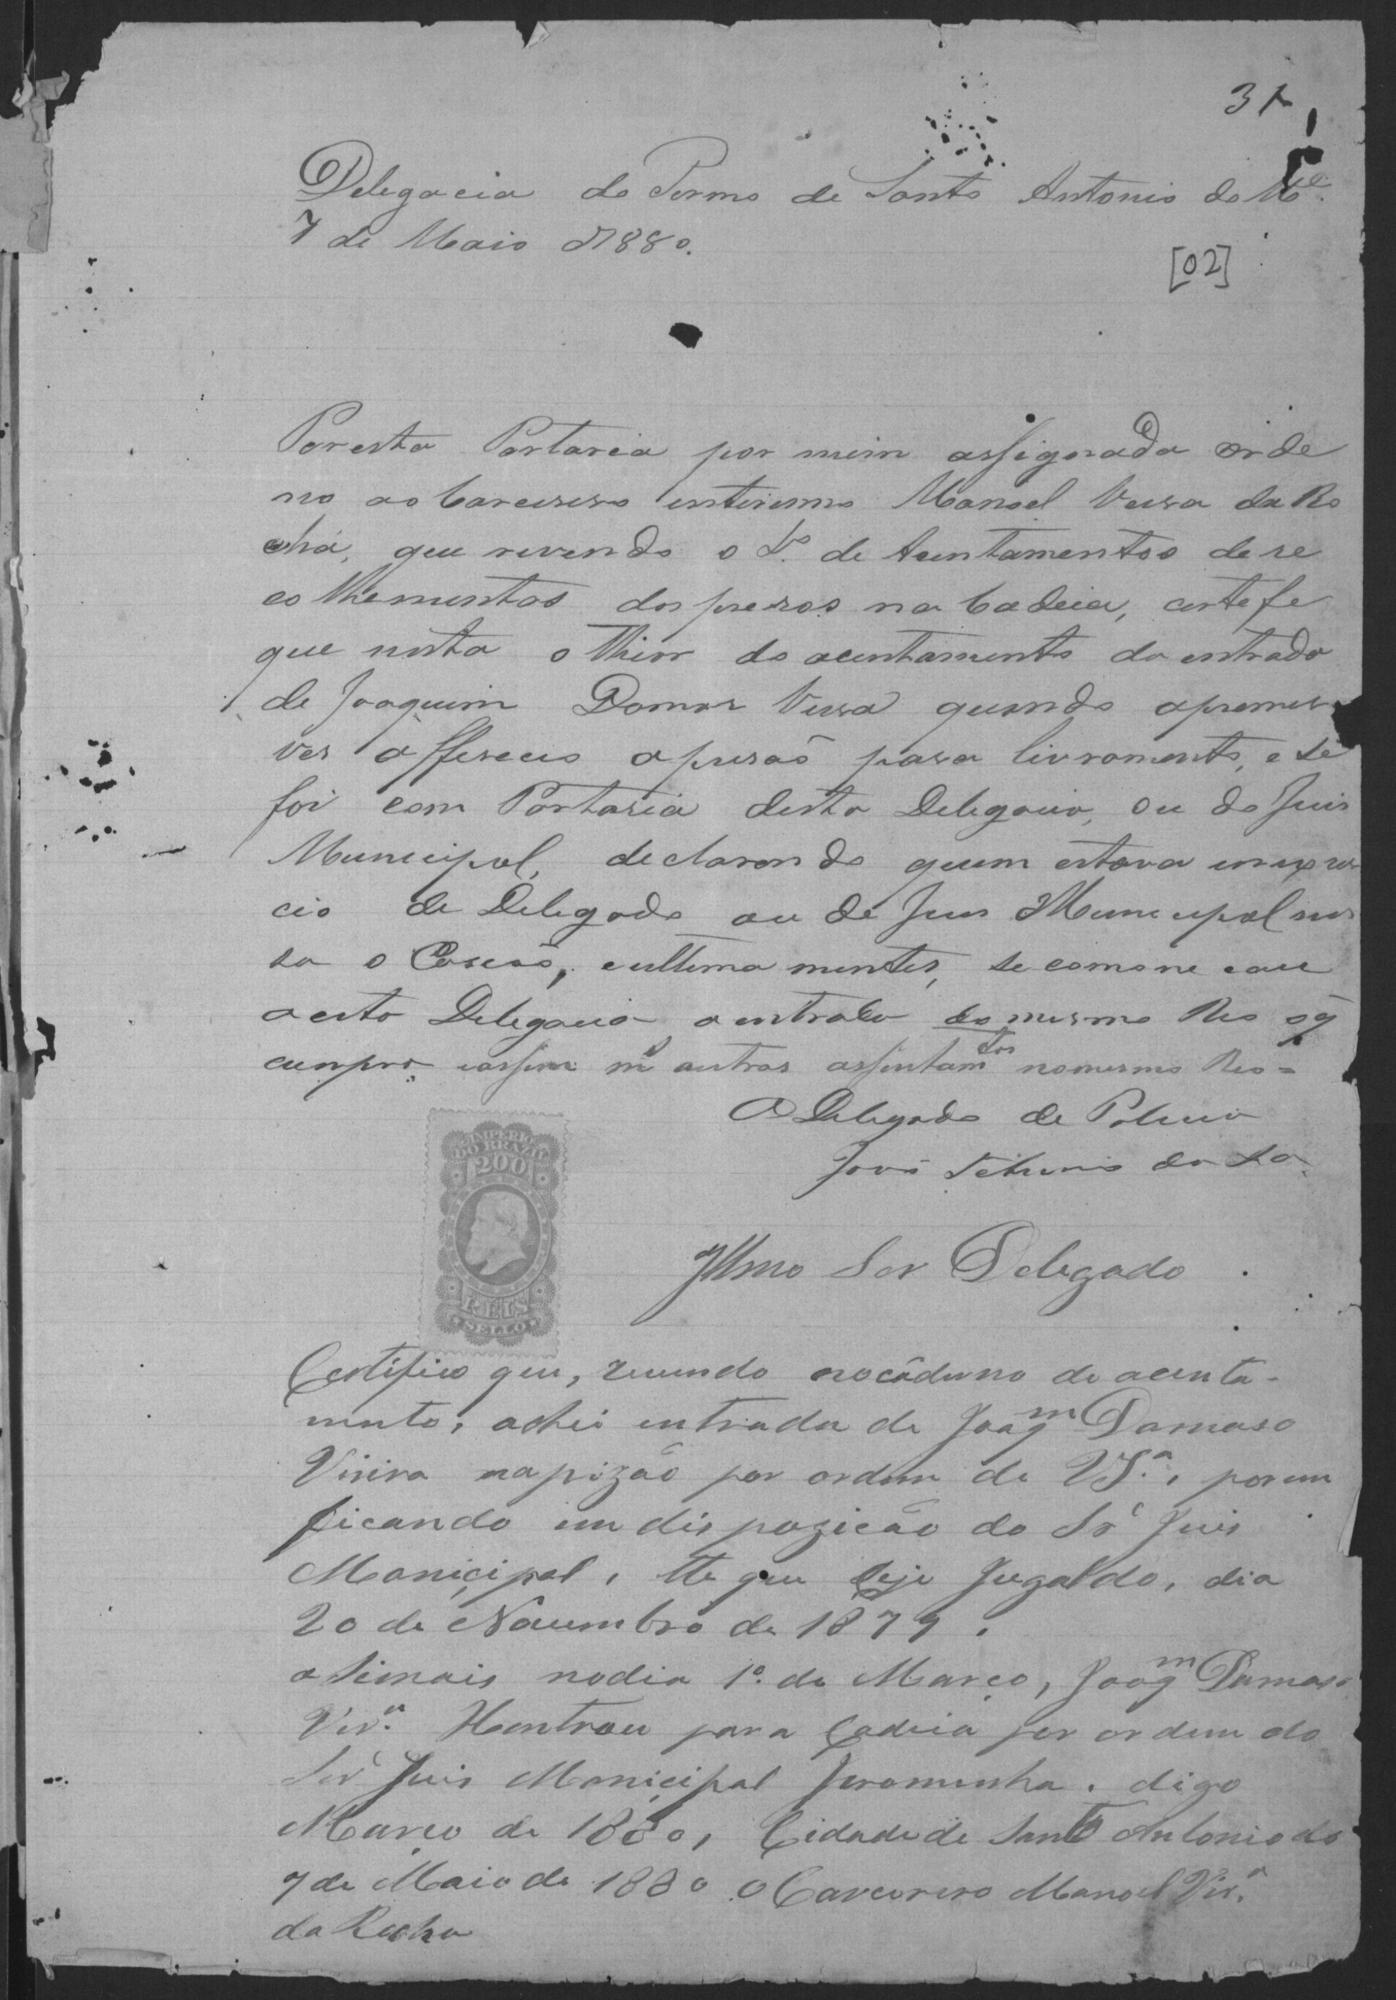 31
Delegacia do Termo de Santo Antonio do M.e
7 de Maio d1880.
[02]
Por esta Portaria por mim assignada orde
no ao Carcereiro interinno Manoel Vieira da Ro
cha, que revendo o L.o de Acentamentos de re
colhementos dos prezos na Cadeia, certefe
que nesta o thior do acentamento da entrada
de Joaquim Damas Vieira quando apremer
ves offereceo aprisaõ para livramento, e se
foi com Portaria desta Delegacia, ou do Juis
Municipal, declarando quem estava in exer
cio de Delegado ou de Juis Municipal
o e ultima mentes, se
a esta Delegacia a entrada do mesmo Reo
cumpra e assim outros assentam.tos no mesmo Reo =
O Delegado de Policia
IMPERIO
DO BRAZIL
200
REIS
SELLO
Illmo Snr Delegado
Certifico que, revendo nocáderno de acenta-
mento, achei entrada de Joaq.m Damaso
Vieira napizão por ordem de VS.a, porem
ficando em dispozicão do Sr Juis
Moniçipal, the que seje Jugaldo, dia
20 de Novembro de 1879.
nodia 1º. de Março, Joaq.m Damaso
Vir.a Hentrou para Cadeia por ordem do
Snr Juis Moniçipal Jeromenha. digo
Março de 1880, Cidade de Santo Antonio do
7 de Maio de 1880 o Carcereiro Manoel Vir.a
da Rocha